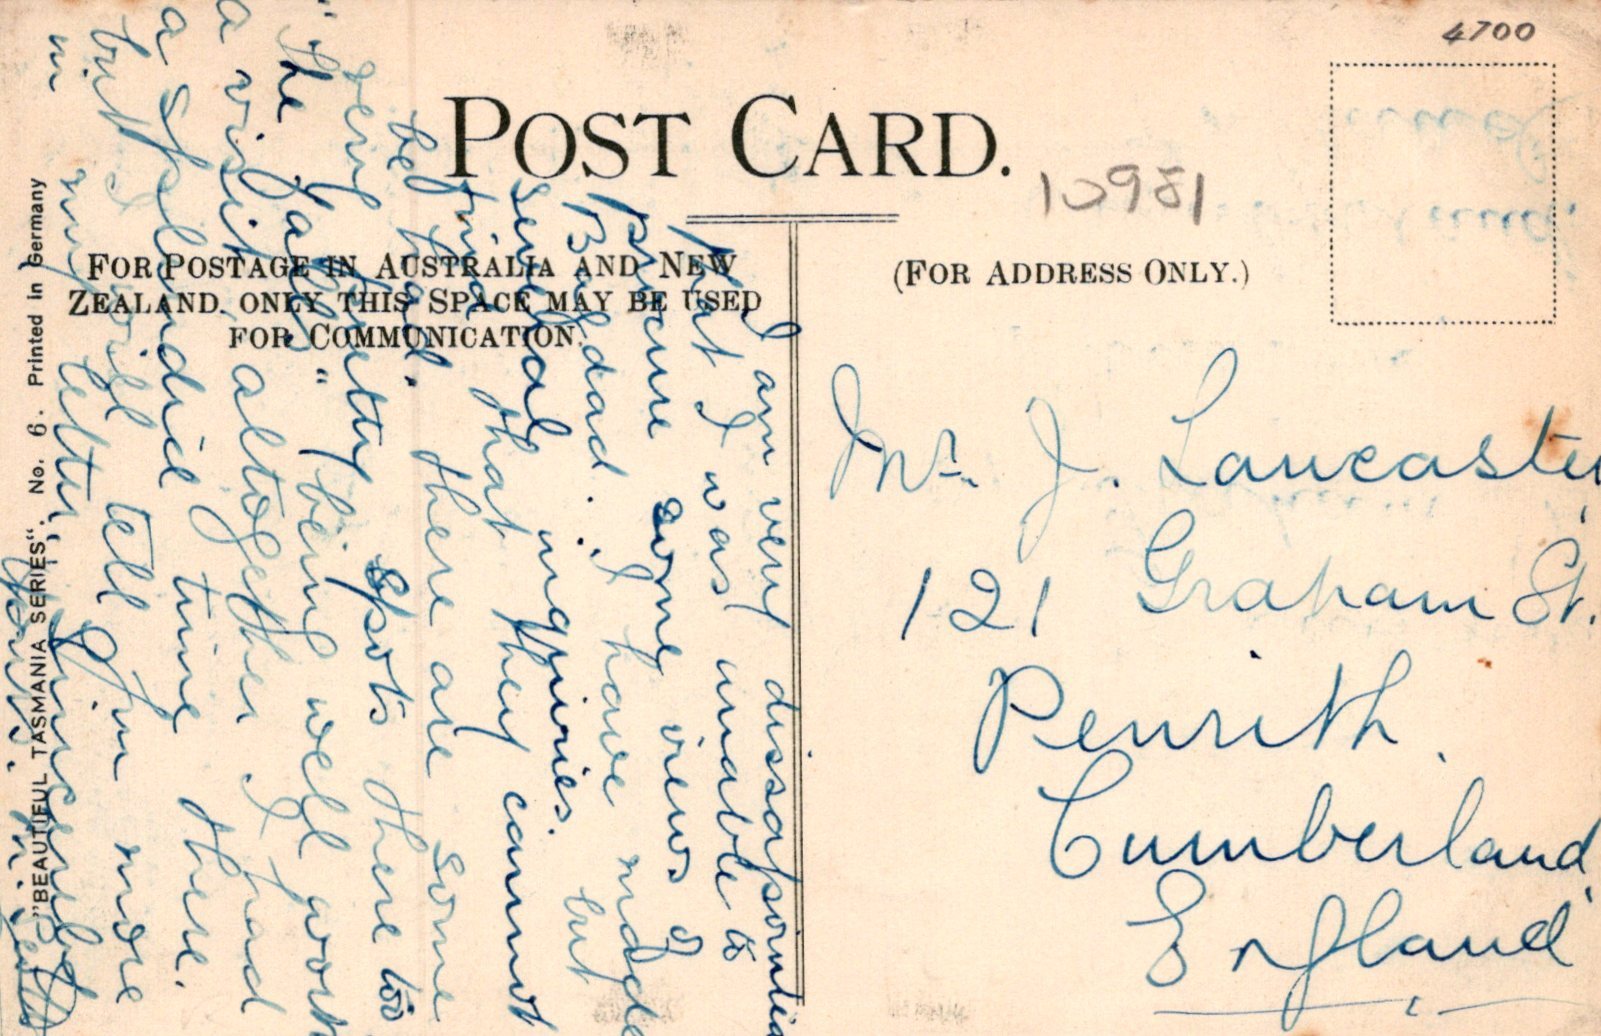 4700
POST CARD.
10981
FOR POSTAGE IN AUSTRALIA AND NEW
ZEALAND. ONLY THIS SPACE MAY BE USED
FOR COMMUNICATION.
(FOR ADDRESS ONLY.)
I am very dissapointed
that I was unable to
procure some views of
Bagdad. I have made
several inquiries. but
find that they cannot
be had. there are some
very pretty spots there too
"the Falls" being well worth
a visit altogether I had
a splendid time there.
but I will tell you more
in my letter, Sincerely
Yours.
Mr. J. Lancaster,
121 Graham St.
Penrith.
Cumberland,
England
"BEAUTIFUL TASMANIA SERIES". No. 6. Printed in Germany